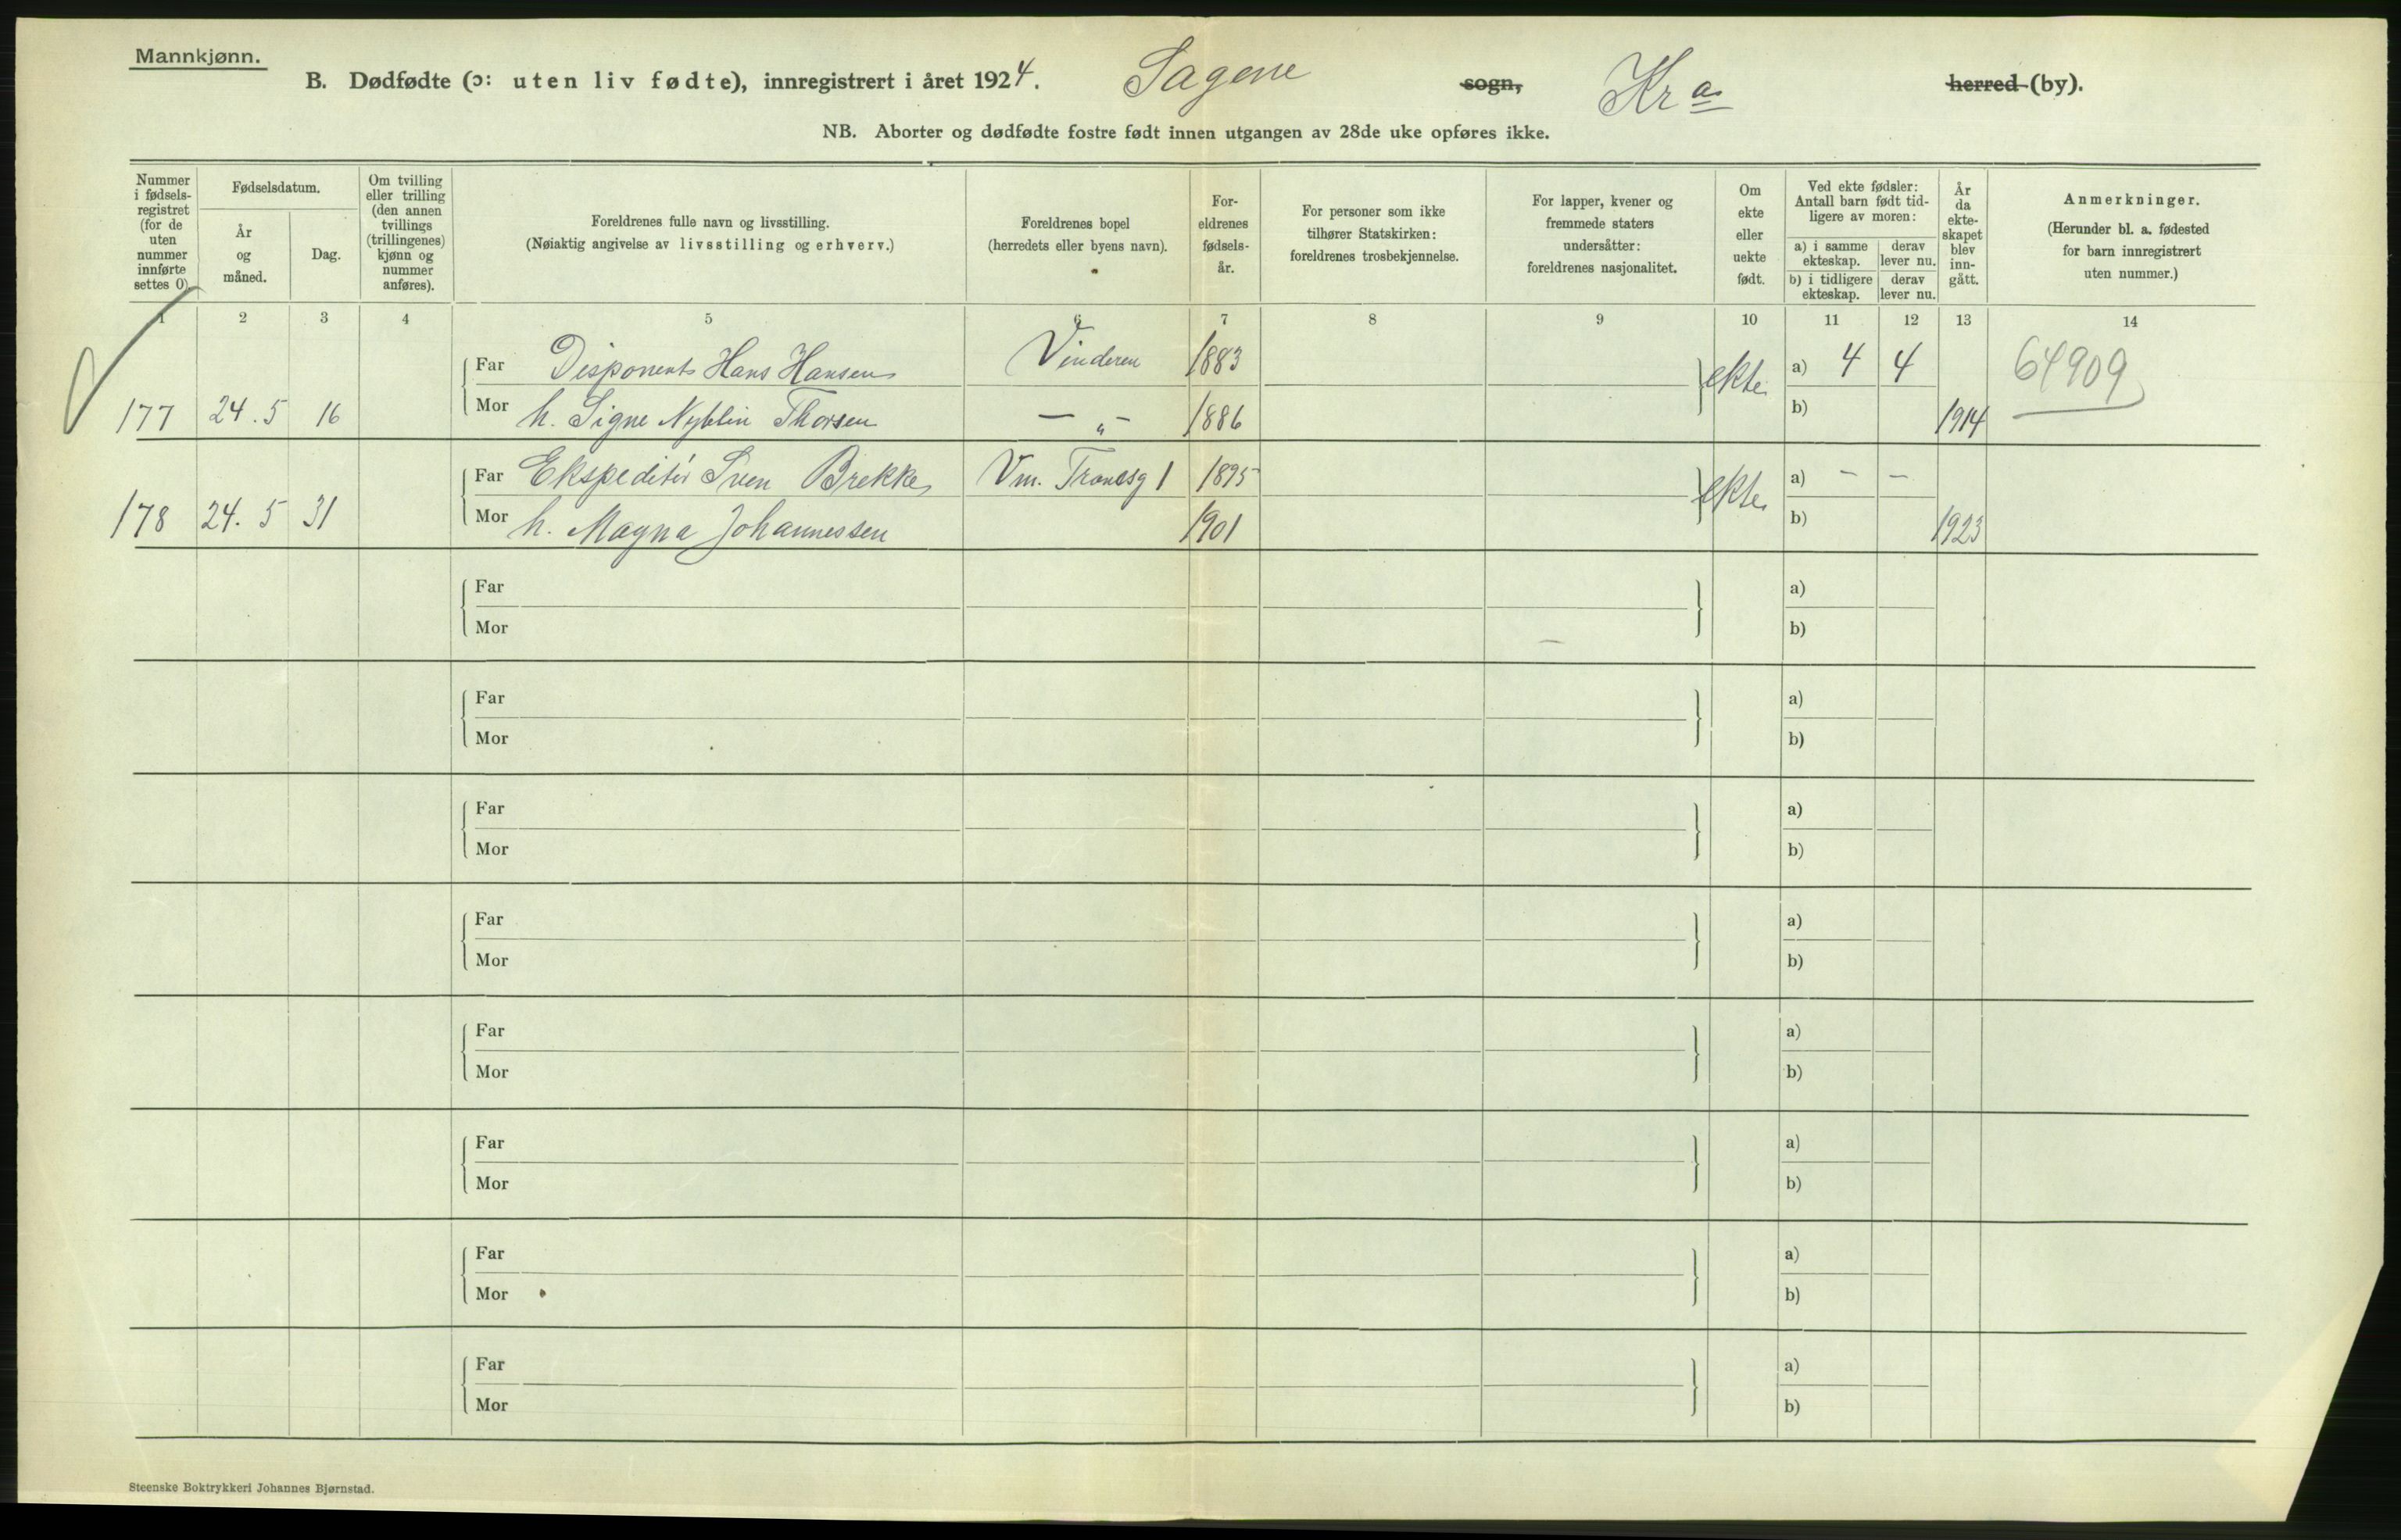 Mannkjønn.
B. Dødfødte (ɔ: uten liv fødte), innregistrert i året 1924. Sagene sogn, Kra herred (by).
NB. Aborter og dødfødte fostre født innen utgangen av 28de uke opføres ikke.
Nummer i fødsels-registret (for de uten nummer innførte settes 0).
Fødselsdatum.
År og måned.
Dag.
Om tvilling eller trilling (den annen tvillings (trillingenes) kjønn og nummer anføres).
Foreldrenes fulle navn og livsstilling.
(Nøiaktig angivelse av livsstilling og erhverv.)
Foreldrenes bopel
(herredets eller byens navn).
For-eldrenes fødsels-år.
For personer som ikke tilhører Statskirken: foreldrenes trosbekjennelse.
For lapper, kvener og fremmede staters undersåtter: foreldrenes nasjonalitet.
Om ekte eller uekte født.
Ved ekte fødsler: Antall barn født tid-ligere av moren:
a) i samme ekteskap.
derav lever nu.
b) i tidligere ekteskap.
derav lever nu.
År da ekte-skapet blev inn-gått.
Anmerkninger.
(Herunder bl. a. fødested for barn innregistrert uten nummer.)
1 2 3 4 5 6 7 8 9 10 11 12 13 14
Far Disponent Hans Hansen Vinderen 1883 ekte a) 4 4 64909
177 24.5 16 Mor h. Signe Nyblin Thorsen — „ — 1886 b) 1914
Far Ekspeditør Sven Brekke Vm. 1 1895 ekte a) – –
178 24.5 31 Mor h. Magna Johannessen 1901 b) 1923
Far a)
Mor b)
Far a)
Mor b)
Far a)
Mor b)
Far a)
Mor b)
Far a)
Mor b)
Far a)
Mor b)
Far a)
Mor b)
Far a)
Mor b)
Steenske Boktrykkeri Johannes Bjørnstad.